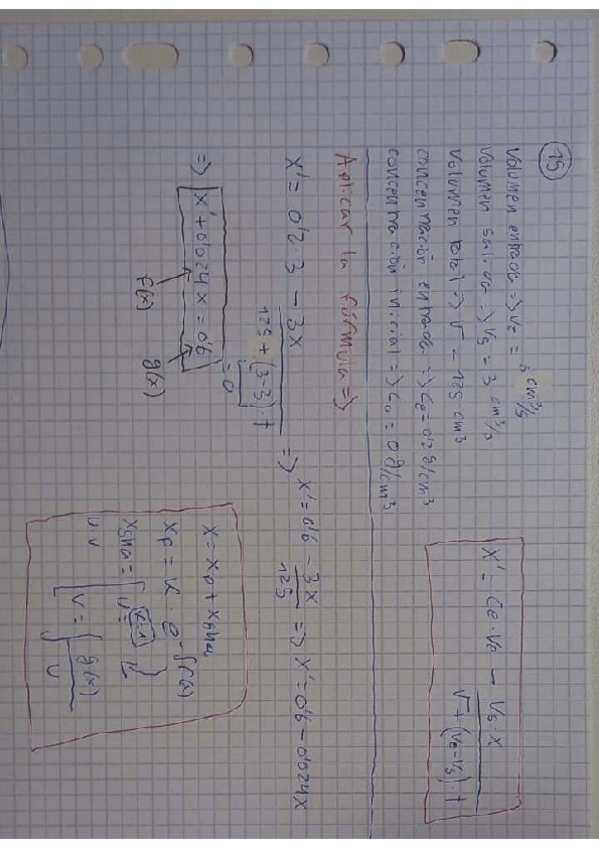 15
Volumen entrada => Ve = 3 cm³/s
Volumen salida => Vs = 3 cm³/s
Volumen total => V = 125 cm³
concentración entrada => Ce = 0'2 g/cm³
concentración inicial => C₀ = 0 g/cm³
X' = Ce·Ve - Vs·X / V + (Ve-Vs)·t
Aplicar la fórmula =>
X' = 0'2·3 - 3X / 125 + (3-3)·t => X' = 0'6 - 3X / 125 => X' = 0'6 - 0'024X
= 0
=> X' + 0'024X = 0'6
f(x) g(x)
X = Xp + XgHa
Xp = K · e^-∫f(x)
XgHa =
u v
V = ∫ g(x) / u